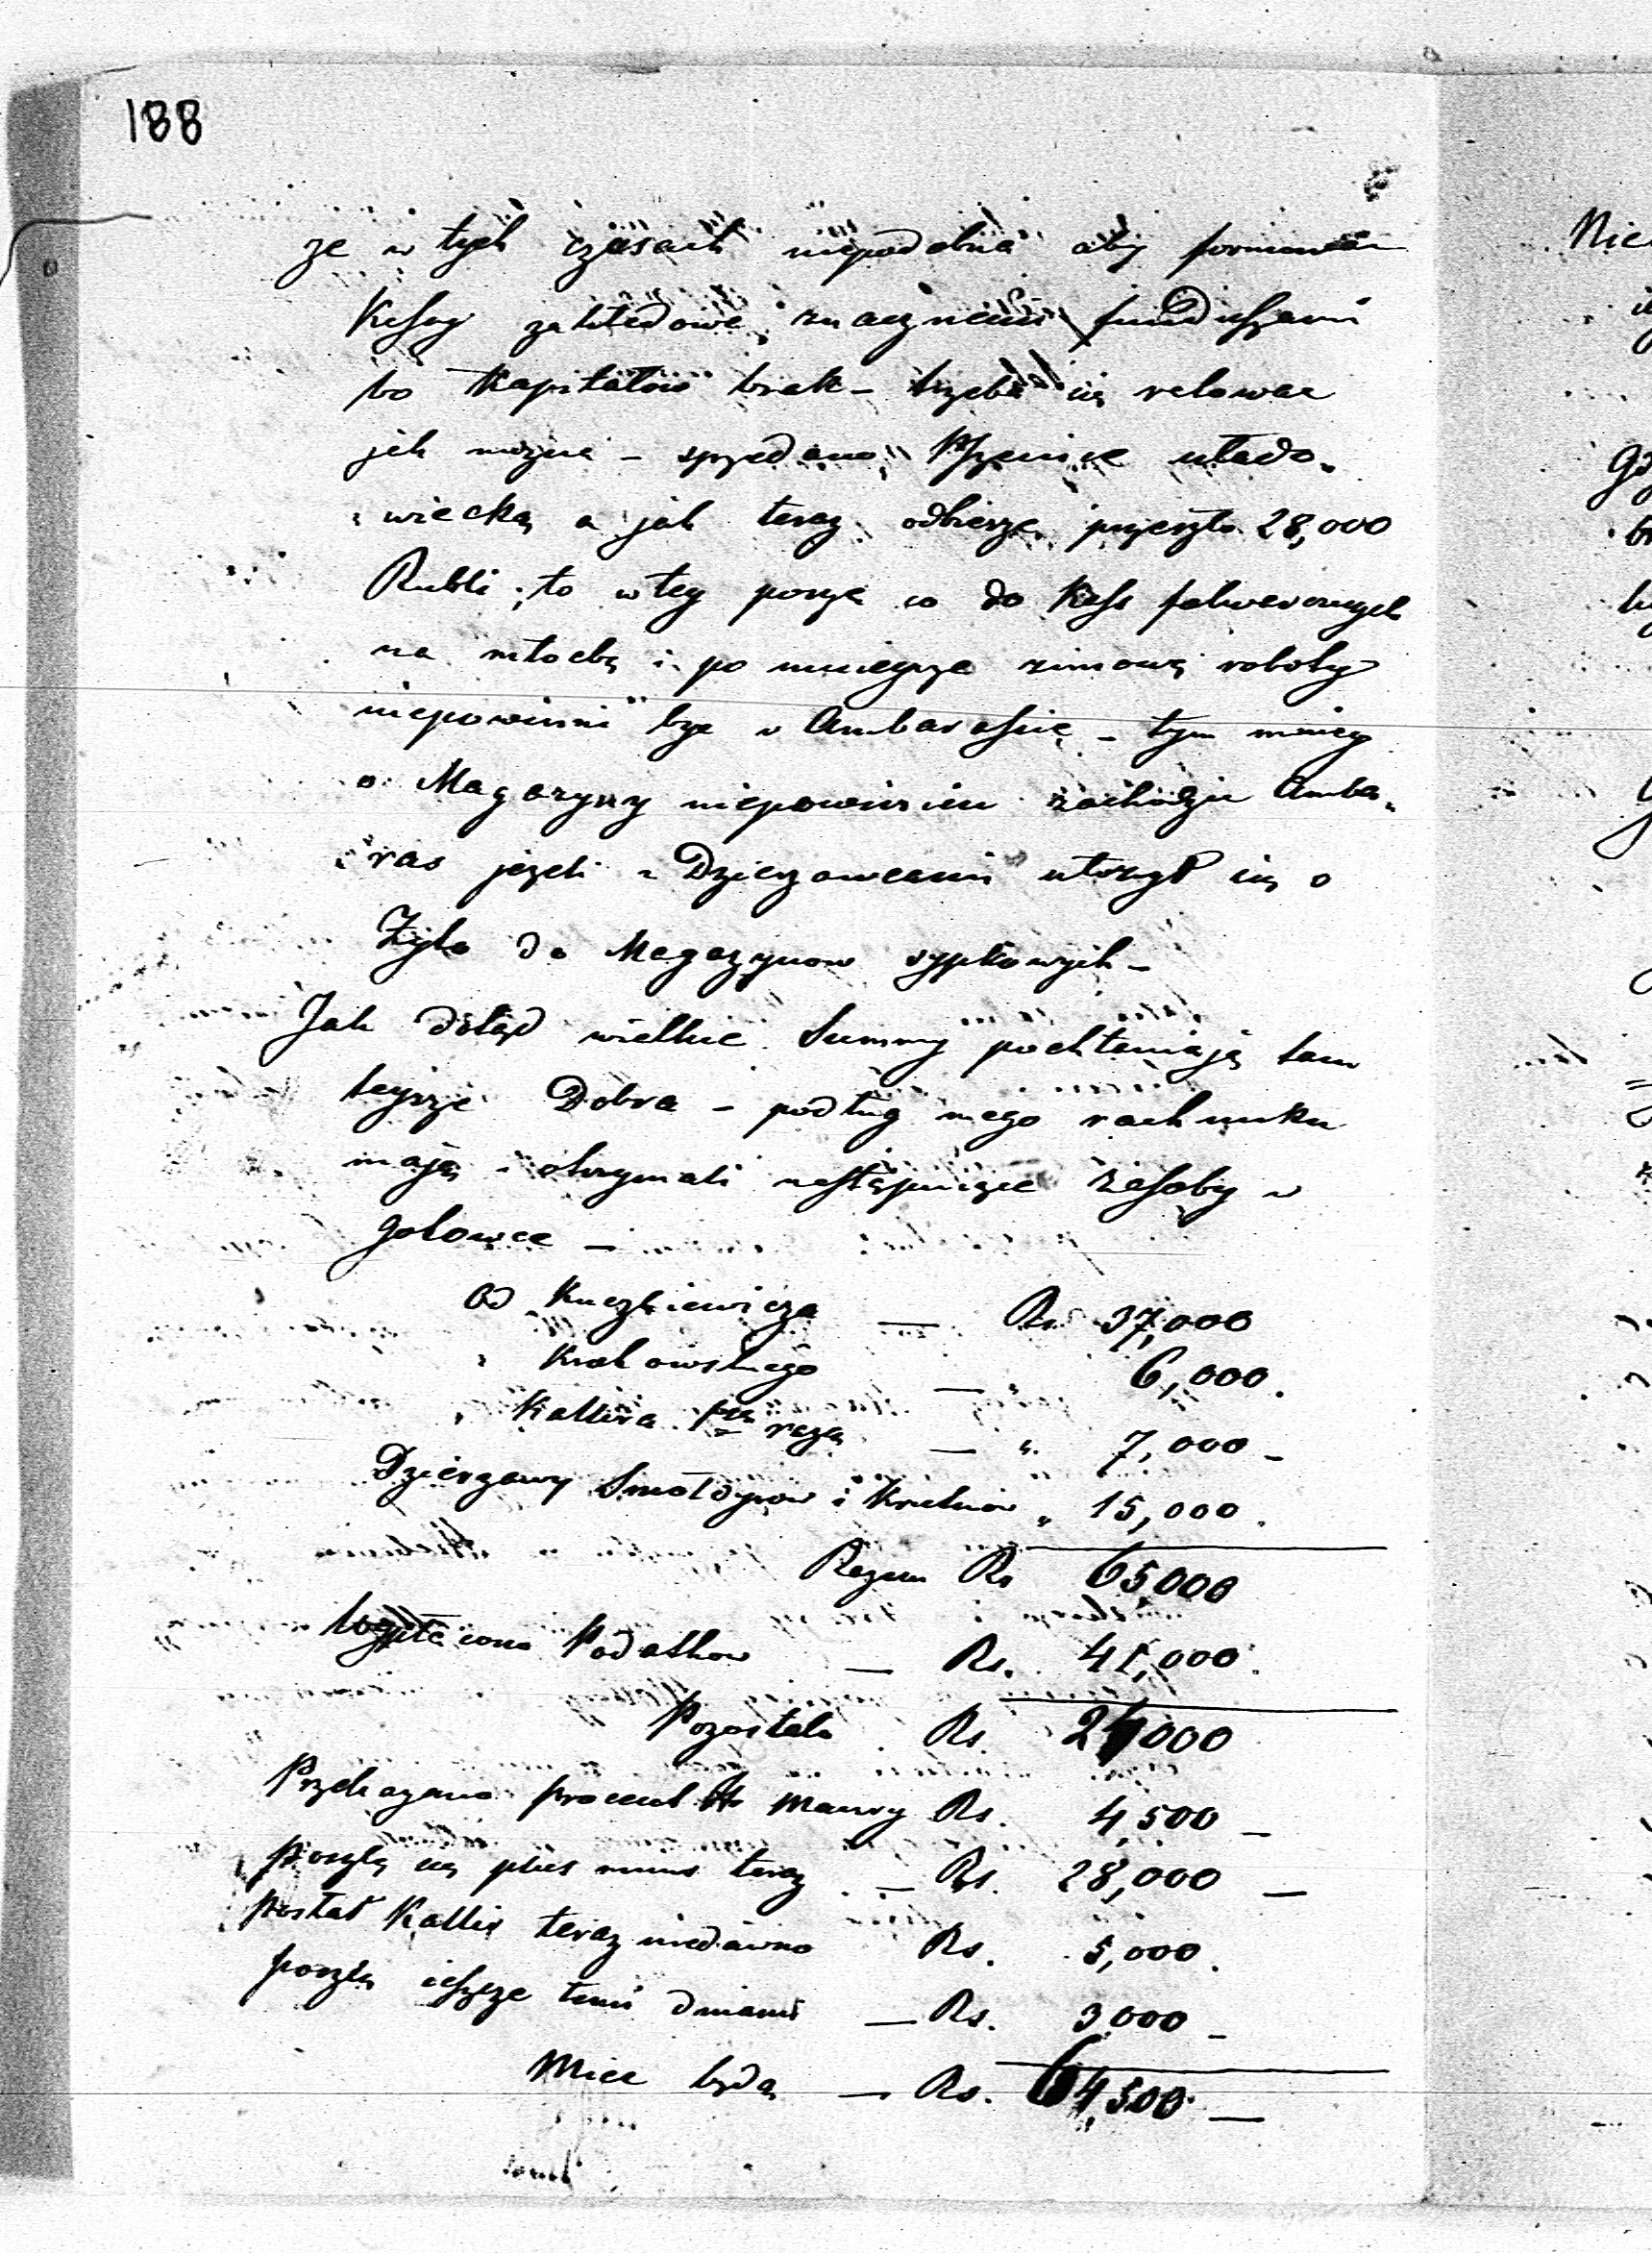 188
ze w tych czasach niepodobna aby formować
Kassy zakładowe znacznemi funduszami
bo Kapitałow brak – trzeba się ratowac
jak można – sprzedano Pszenice ułado„
„wiecką a jak teraz odbierze przeszło 28,000
Rubli, to w tey porze co do Kass folwarcznych
na młocbę i po mnieysze zimowe roboty
niepowinni bye w Ambarasie – tym mniey
o Magazyny niepowinien zachodzić Amba„
„ras jezeli z Dzierzawcami ułozył się o
Zyto do Magazynow sypkowych –
Jak dotąd wielkie Summy pochłaniają tam
teysze Dobra – podług mego rachunku
mają i otrzymali następujące zasoby w
gotowce –
Od Kuczkiewicza — Rs 37,000
„ Krakowskiego — 6,000.
„ Kallira 1szą razą — „ 7,000 –
Dzierzawy Smołdyrow i Krutniow „ 15,000.
Razem Rs 65000
Wypłacono Podatkow — Rs. 41,000.
Pozostało Rs. 24000
Przekazano procent Maury Rs. 4,500 –
Poszlą się plus minus teraz — Rs. 28,000 —
Posłał Kallir teraz niedawno Rs. 5,000.
poszlą ieszcze temi dniami — Rs. 3000 –
Miec będą — Rs. 64,500 —